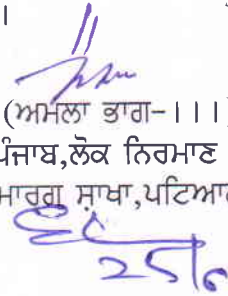 ।
(ਅਮਲਾ ਭਾਗ-।।।)
ਪੰਜਾਬ,ਲੋਕ ਨਿਰਮਾਣ
ਮਾਰਗ ਸ਼ਾਖਾ,ਪਟਿਆਲ